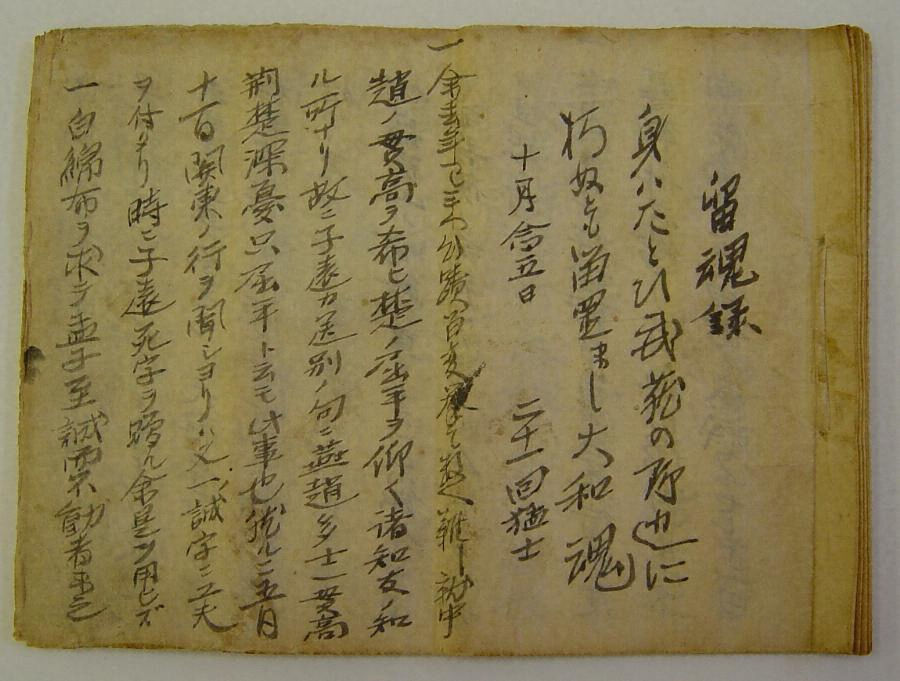 留魂録
身ハたとひ武蔵の野辺に
朽ぬとも留置まし大和魂
十月念五日 二十一回猛士
一 余去年已来心蹟百変挙て数へ難し就中
趙ノ貫高ヲ希ヒ楚ノ屈平ヲ仰ク諸知友ノ知
ル所ナリ故ニ子遠カ送別ノ句ニ燕趙多士一貫高
荊楚深憂只屈平ト云モ此事也然ルニ五月
十一日関東ノ行ヲ聞シヨリハ又一誠字ニ工夫
ヲ付タリ時ニ子遠死字ヲ贈ル余是ヲ用ヒズ
一白綿布ヲ求テ孟子至誠而不動者未之